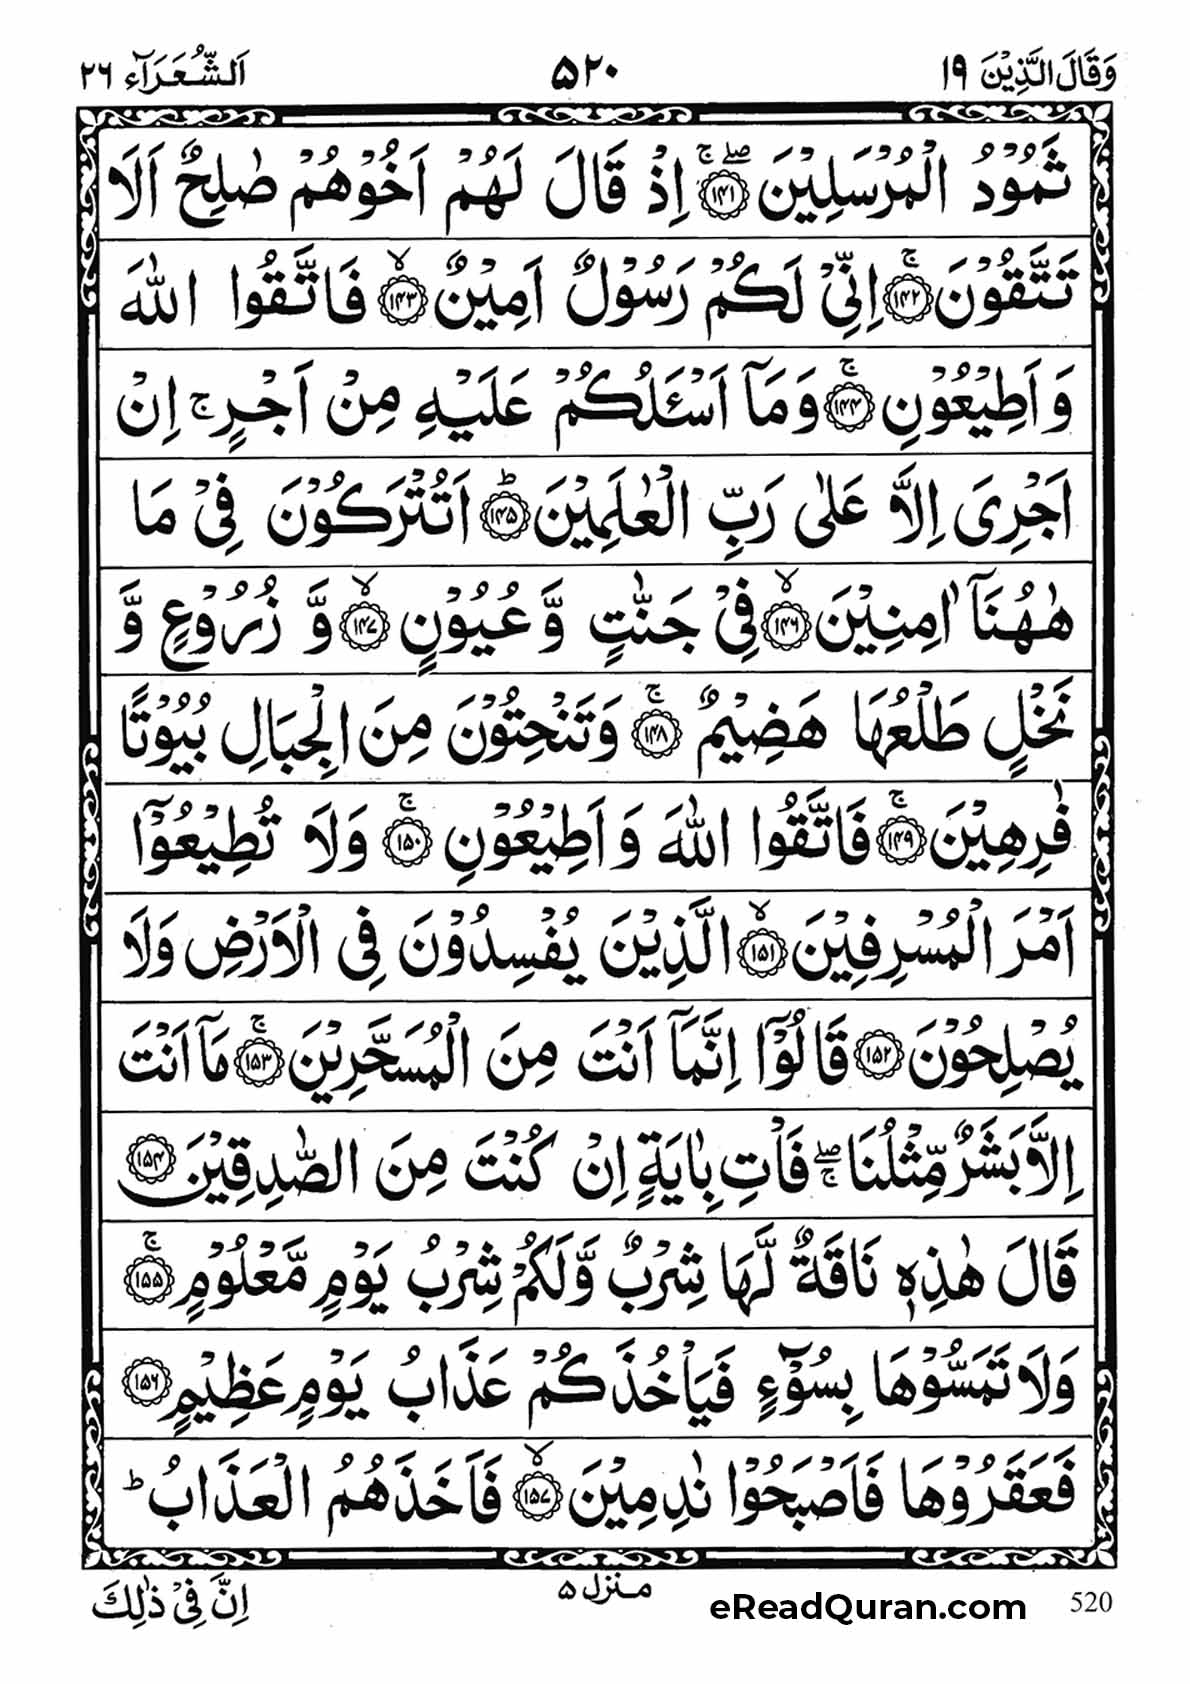 وَقَالَ الَّذِيْنَ ١٩ ٥٢٠ اَلشُّعَرَآء ٢٦
ثَمُوْدُ الْمُرْسَلِيْنَ ۚۖ ﴿۱۴۱﴾ اِذْ قَالَ لَهُمْ اَخُوْهُمْ صٰلِحٌ اَلَا
تَتَّقُوْنَ ۚ ﴿۱۴۲﴾ اِنِّىْ لَكُمْ رَسُوْلٌ اَمِيْنٌ ۙ ﴿۱۴۳﴾ فَاتَّقُوا اللّٰهَ
وَاَطِيْعُوْنِ ۚ ﴿۱۴۴﴾ وَمَآ اَسْـَٔلُكُمْ عَلَيْهِ مِنْ اَجْرٍ ۚ اِنْ
اَجْرِىَ اِلَّا عَلٰى رَبِّ الْعٰلَمِيْنَ ؕ ﴿۱۴۵﴾ اَتُتْرَكُوْنَ فِىْ مَا
هٰهُنَآ اٰمِنِيْنَ ۙ ﴿۱۴۶﴾ فِىْ جَنّٰتٍ وَّعُيُوْنٍ ۙ ﴿۱۴۷﴾ وَّ زُرُوْعٍ وَّ
نَخْلٍ طَلْعُهَا هَضِيْمٌ ۚ ﴿۱۴۸﴾ وَتَنْحِتُوْنَ مِنَ الْجِبَالِ بُيُوْتًا
فٰرِهِيْنَ ۚ ﴿۱۴۹﴾ فَاتَّقُوا اللّٰهَ وَاَطِيْعُوْنِ ۚ ﴿۱۵۰﴾ وَلَا تُطِيْعُوْٓا
اَمْرَ الْمُسْرِفِيْنَ ۙ ﴿۱۵۱﴾ الَّذِيْنَ يُفْسِدُوْنَ فِى الْاَرْضِ وَلَا
يُصْلِحُوْنَ ﴿۱۵۲﴾ قَالُوْٓا اِنَّمَآ اَنْتَ مِنَ الْمُسَحَّرِيْنَ ۚ ﴿۱۵۳﴾ مَآ اَنْتَ
اِلَّا بَشَرٌ مِّثْلُنَا ۖۚ فَاْتِ بِاٰيَةٍ اِنْ كُنْتَ مِنَ الصّٰدِقِيْنَ ﴿۱۵۴﴾
قَالَ هٰذِهٖ نَاقَةٌ لَّهَا شِرْبٌ وَّلَكُمْ شِرْبُ يَوْمٍ مَّعْلُوْمٍ ۚ ﴿۱۵۵﴾
وَلَا تَمَسُّوْهَا بِسُوْٓءٍ فَيَاْخُذَكُمْ عَذَابُ يَوْمٍ عَظِيْمٍ ﴿۱۵۶﴾
فَعَقَرُوْهَا فَاَصْبَحُوْا نٰدِمِيْنَ ۙ ﴿۱۵۷﴾ فَاَخَذَهُمُ الْعَذَابُ ؕ
اِنَّ فِىْ ذٰلِكَ منزل ۵ eReadQuran.com 520